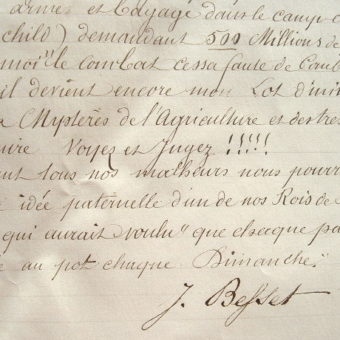 arme et bagage dans le camp
child) demandant 500 Millions de
moi" le combat cessa faute de Com
il devient encore mon Lot d'in
Mystères de l'Agriculture et des
Voyez et Jugez !!!!!
tous nos malheurs nous pour
idée paternelle d'un de nos Rois de
qui aurait voulu "que chaque pa
au pot chaque Dimanche"
J. Besset